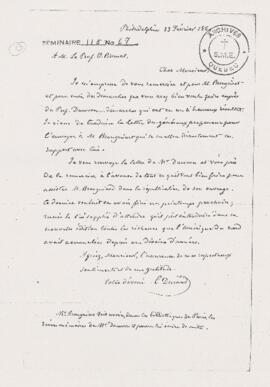 Philadelphia 23 Février 186
SEMINAIRE 115 No 67
ARCHIVES S.M.E. QUEBEC
A M. Le Prof. O. Brunet
Cher Monsieur,
Je m'empresse de vous remercier et pour M. Brongniart et
pour moi des démarches que vous avez bien voulu faire auprès
du Prof. Dawson, démarches qui ont eu un si heureux résultat.
Je viens de traduire la lettre du généreux professeur pour
l'envoyer à M. Brongniart qui se mettra directement en
rapport avec lui.
Je vous renvoye la lettre de Mr Dawson et vous prie
de le remercier à l'avance de tout ce qu'il veut bien faire pour
assister M. Brongniart dans la republication de son ouvrage.
Ce dernier voulait en avoir fini au printemps prochain;
mais je l'ai supplié d'attendre qu'il put introduire dans sa
nouvelle édition toutes les richesses que l'Amérique du Nord
avait accumulées depuis un dizaine d'années.
Agréez, Monsieur, l'assurance de mes respectueux
sentiments et de ma gratitude.
Votre dévoué E. Durand
Mr. Brongniart doit avoir, dans les bibliothèques de Paris, les
mémoires de Mr Dawson